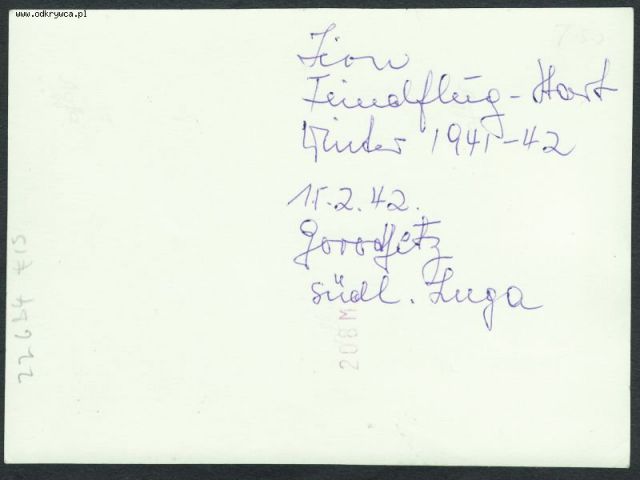 www.odkrywca.pl
Feindflug-Start
Winter 1941-42
15.2.42.
Gorodetz
südl. Luga
208M
22634 €15